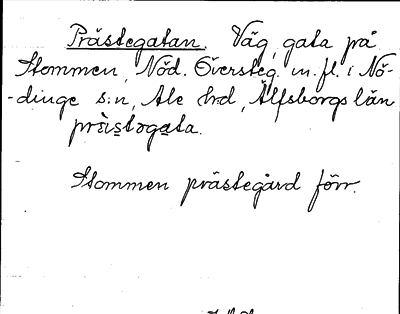 Prästegatan. Väg, gata på
Stommen, Nöd. Översteg. m.fl. i Nö-
-dinge s:n, Ale hrd, Älfsborgs län
prästəgata.
Stommen prästegård förr.